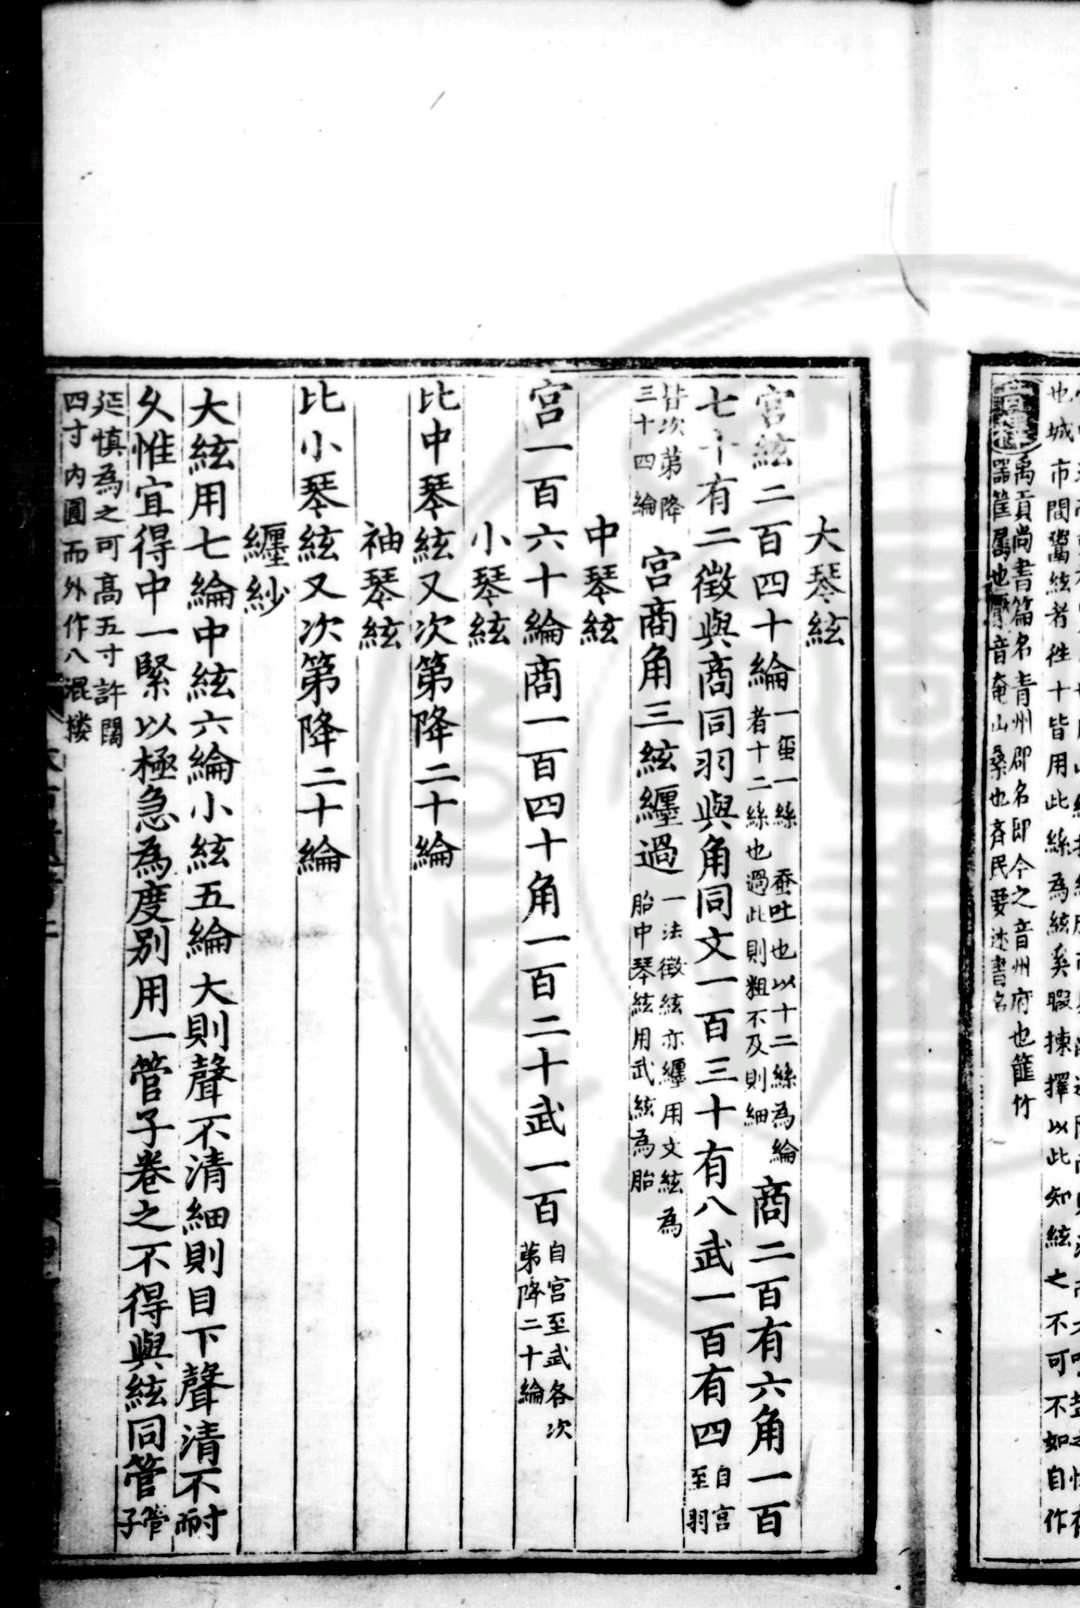 也城市間鬻絃者徃十皆用此絲為絃奚暇揀擇以此知絃之不可不如自作
禹貢尚書篇名青州郡名即今之音州府也篚竹
器筐屬也檿音奄山桑也齊民要述書名
大琴絃
宮絃二百四十綸一蚕一絲 蚕吐也以十二絲為綸
者十二絲也過此則粗不及則細商二百有六角一百
七十有二徵與商同羽與角同文一百三十有八武一百有四自宮
至羽
皆次第降
三十四綸宮商角三絃纏過一法徵絃亦纏用文絃為
胎中琴絃用武絃為胎
中琴絃
宮一百六十綸商一百四十角一百二十武一百自宮至武各次
第降二十綸
小琴絃
比中琴絃又次第降二十綸
袖琴絃
比小琴絃又次第降二十綸
纏紗
大絃用七綸中絃六綸小絃五綸大則聲不清細則目下聲清不耐
久惟宜得中一緊以極急為度別用一管子卷之不得與絃同管管
子
延慎為之可高五寸許闊
四寸內圓而外作八混楼